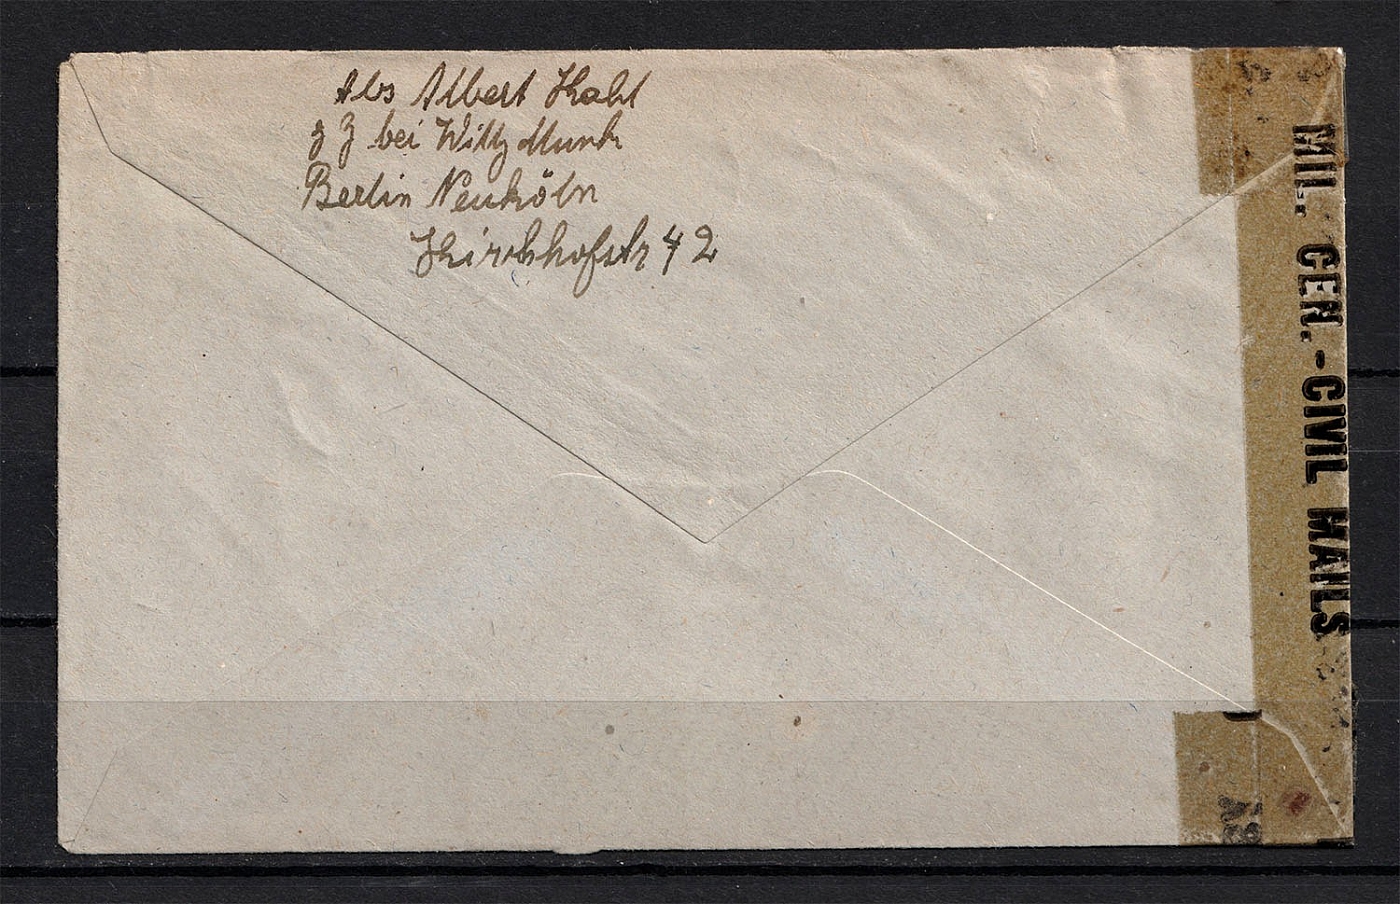 Abs Albert Kahl
z Z bei Willy Munk
Berlin Neuköln
Kirchhofstr 42
MIL. CEN. - CIVIL MAILS